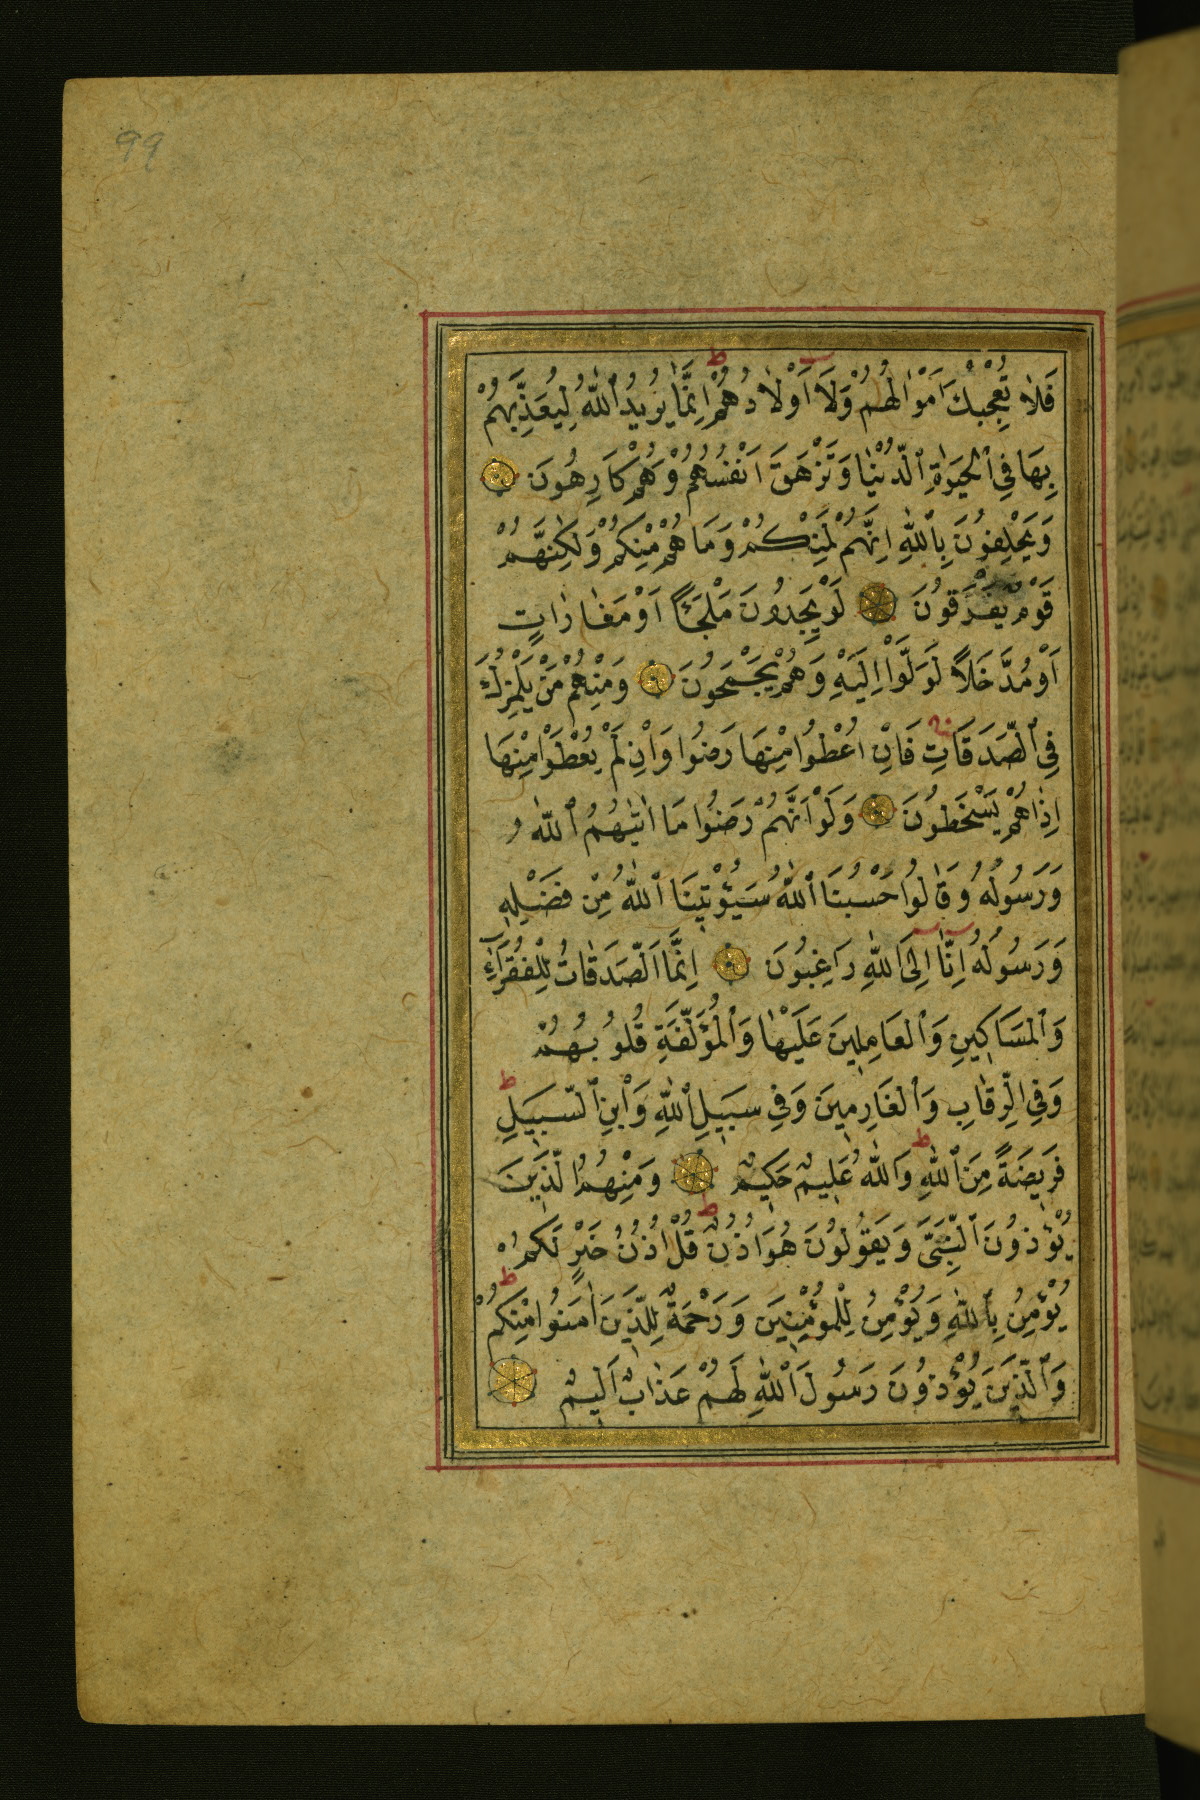 99
فَلَا تُعْجِبْكَ اَمْوَالُهُمْ وَلَا اَوْلَادُهُمْ اِنَّمَا يُرِيدُ ٱللّٰهُ لِيُعَذِّبَهُمْ
بِهَا فِي ٱلْحَيٰوةِ ٱلدُّنْيَا وَتَزْهَقَ اَنْفُسُهُمْ وَهُمْ كَارِهُونَ
وَيَحْلِفُونَ بِٱللّٰهِ اِنَّهُمْ لَمِنْكُمْ وَمَا هُمْ مِنْكُمْ وَلٰكِنَّهُمْ
قَوْمٌ يَفْرَقُونَ لَوْ يَجِدُونَ مَلْجَـًٔا اَوْ مَغَارَاتٍ
اَوْ مُدَّخَلًا لَوَلَّوْا اِلَيْهِ وَهُمْ يَجْمَحُونَ وَمِنْهُمْ مَنْ يَلْمِزُكَ
فِي ٱلصَّدَقَاتِ فَاِنْ اُعْطُوا مِنْهَا رَضُوا وَاِنْ لَمْ يُعْطَوْا مِنْهَا
اِذَا هُمْ يَسْخَطُونَ وَلَوْ اَنَّهُمْ رَضُوا مَا اٰتٰيهُمُ ٱللّٰهُ
وَرَسُولُهُ وَقَالُوا حَسْبُنَا ٱللّٰهُ سَيُؤْتِينَا ٱللّٰهُ مِنْ فَضْلِهِ
وَرَسُولُهُ اِنَّا اِلَى ٱللّٰهِ رَاغِبُونَ اِنَّمَا ٱلصَّدَقَاتُ لِلْفُقَرَاءِ
وَٱلْمَسَاكِينِ وَٱلْعَامِلِينَ عَلَيْهَا وَٱلْمُؤَلَّفَةِ قُلُوبُهُمْ
وَفِي ٱلرِّقَابِ وَٱلْغَارِمِينَ وَفِي سَبِيلِ ٱللّٰهِ وَٱبْنِ ٱلسَّبِيلِ
فَرِيضَةً مِنَ ٱللّٰهِ وَٱللّٰهُ عَلِيمٌ حَكِيمٌ وَمِنْهُمُ ٱلَّذِينَ
يُؤْذُونَ ٱلنَّبِيَّ وَيَقُولُونَ هُوَ اُذُنٌ قُلْ اُذُنُ خَيْرٍ لَكُمْ
يُؤْمِنُ بِٱللّٰهِ وَيُؤْمِنُ لِلْمُؤْمِنِينَ وَرَحْمَةٌ لِلَّذِينَ اٰمَنُوا مِنْكُمْ
وَٱلَّذِينَ يُؤْذُونَ رَسُولَ ٱللّٰهِ لَهُمْ عَذَابٌ اَلِيمٌ